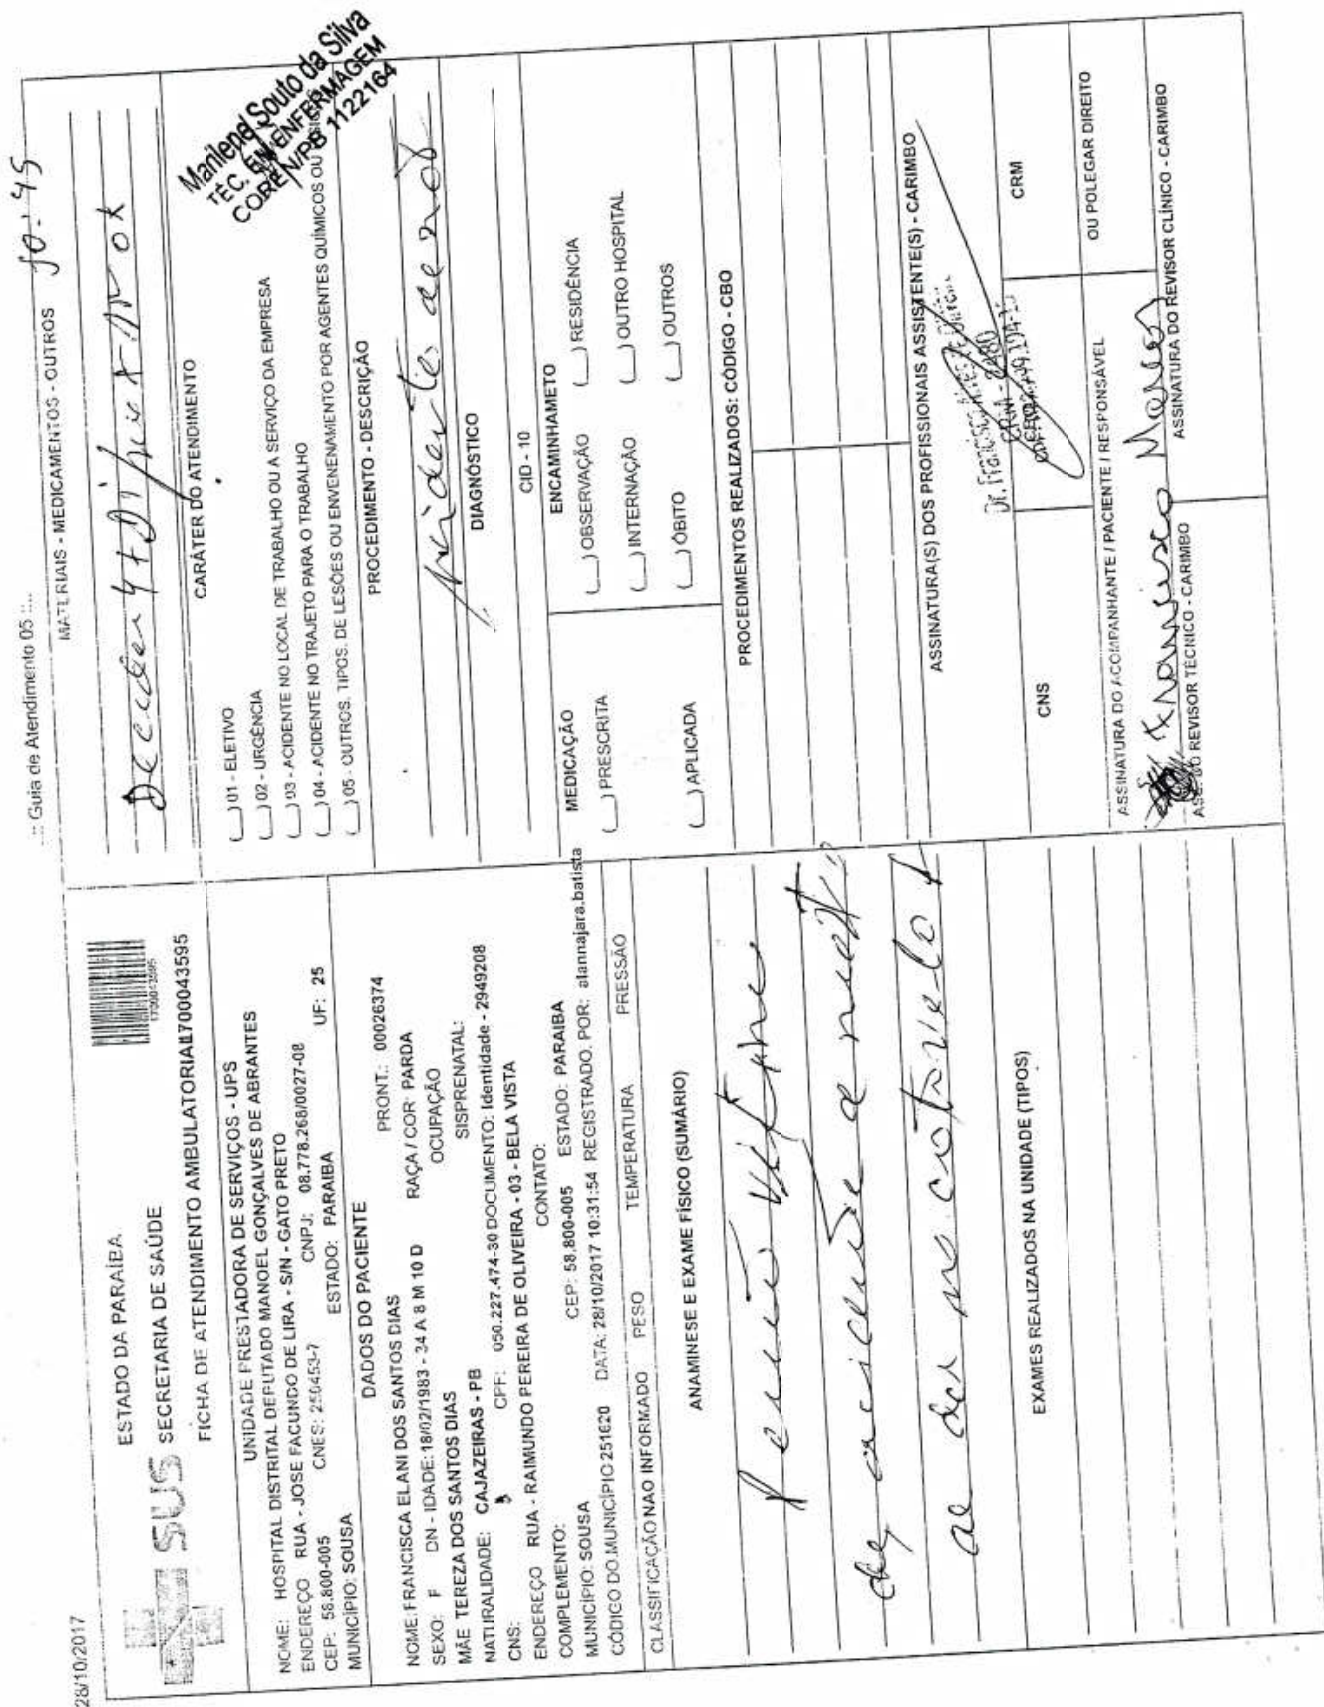 28/10/2017
..:: Guia de Atendimento 05 ::..
ESTADO DA PARAÍBA
SUS SECRETARIA DE SAÚDE
FICHA DE ATENDIMENTO AMBULATORIAL1700043595
UNIDADE PRESTADORA DE SERVIÇOS - UPS
NOME: HOSPITAL DISTRITAL DEPUTADO MANOEL GONÇALVES DE ABRANTES
ENDEREÇO RUA - JOSE FACUNDO DE LIRA - S/N - GATO PRETO
CEP: 58.800-005 CNES: 250453-7 CNPJ: 08.778.268/0027-08
MUNICÍPIO: SOUSA ESTADO: PARAIBA UF: 25
DADOS DO PACIENTE
NOME: FRANCISCA ELANI DOS SANTOS DIAS PRONT.: 00026374
SEXO: F DN - IDADE: 18/02/1983 - 34 A 8 M 10 D RAÇA / COR: PARDA
MÃE TEREZA DOS SANTOS DIAS OCUPAÇÃO
NATURALIDADE: CAJAZEIRAS - PB SISPRENATAL:
CNS: CPF: 050.227.474-30 DOCUMENTO: Identidade - 2949208
ENDEREÇO RUA - RAIMUNDO PEREIRA DE OLIVEIRA - 03 - BELA VISTA
COMPLEMENTO: CONTATO:
MUNICÍPIO: SOUSA CEP: 58.800-005 ESTADO: PARAIBA
CÓDIGO DO MUNICÍPIO 251620 DATA: 28/10/2017 10:31:54 REGISTRADO. POR: alannajara.batista
CLASSIFICAÇÃO NAO INFORMADO PESO TEMPERATURA PRESSÃO
ANAMINESE E EXAME FÍSICO (SUMÁRIO)
Paciente vítima
de acidente de moto
EXAMES REALIZADOS NA UNIDADE (TIPOS)
MATERIAIS - MEDICAMENTOS - OUTROS 10:45
CARÁTER DO ATENDIMENTO
Marilene Souto da Silva
TÉC. EM ENFERMAGEM
COREN/PB 1122164
(__) 01 - ELETIVO
(__) 02 - URGÊNCIA
(__) 03 - ACIDENTE NO LOCAL DE TRABALHO OU A SERVIÇO DA EMPRESA
(__) 04 - ACIDENTE NO TRAJETO PARA O TRABALHO
(__) 05 - OUTROS. TIPOS. DE LESÕES OU ENVENENAMENTO POR AGENTES QUÍMICOS OU FÍSICOS
PROCEDIMENTO - DESCRIÇÃO
DIAGNÓSTICO
CID - 10
MEDICAÇÃO
(__) PRESCRITA
(__) APLICADA
ENCAMINHAMETO
(__) OBSERVAÇÃO (__) RESIDÊNCIA
(__) INTERNAÇÃO (__) OUTRO HOSPITAL
(__) ÓBITO (__) OUTROS
PROCEDIMENTOS REALIZADOS: CÓDIGO - CBO
ASSINATURA(S) DOS PROFISSIONAIS ASSISTENTE(S) - CARIMBO
Dr. Francisco
CNS CRM
ASSINATURA DO ACOMPANHANTE / PACIENTE / RESPONSÁVEL OU POLEGAR DIREITO
ASS. DO REVISOR TÉCNICO - CARIMBO ASSINATURA DO REVISOR CLÍNICO - CARIMBO